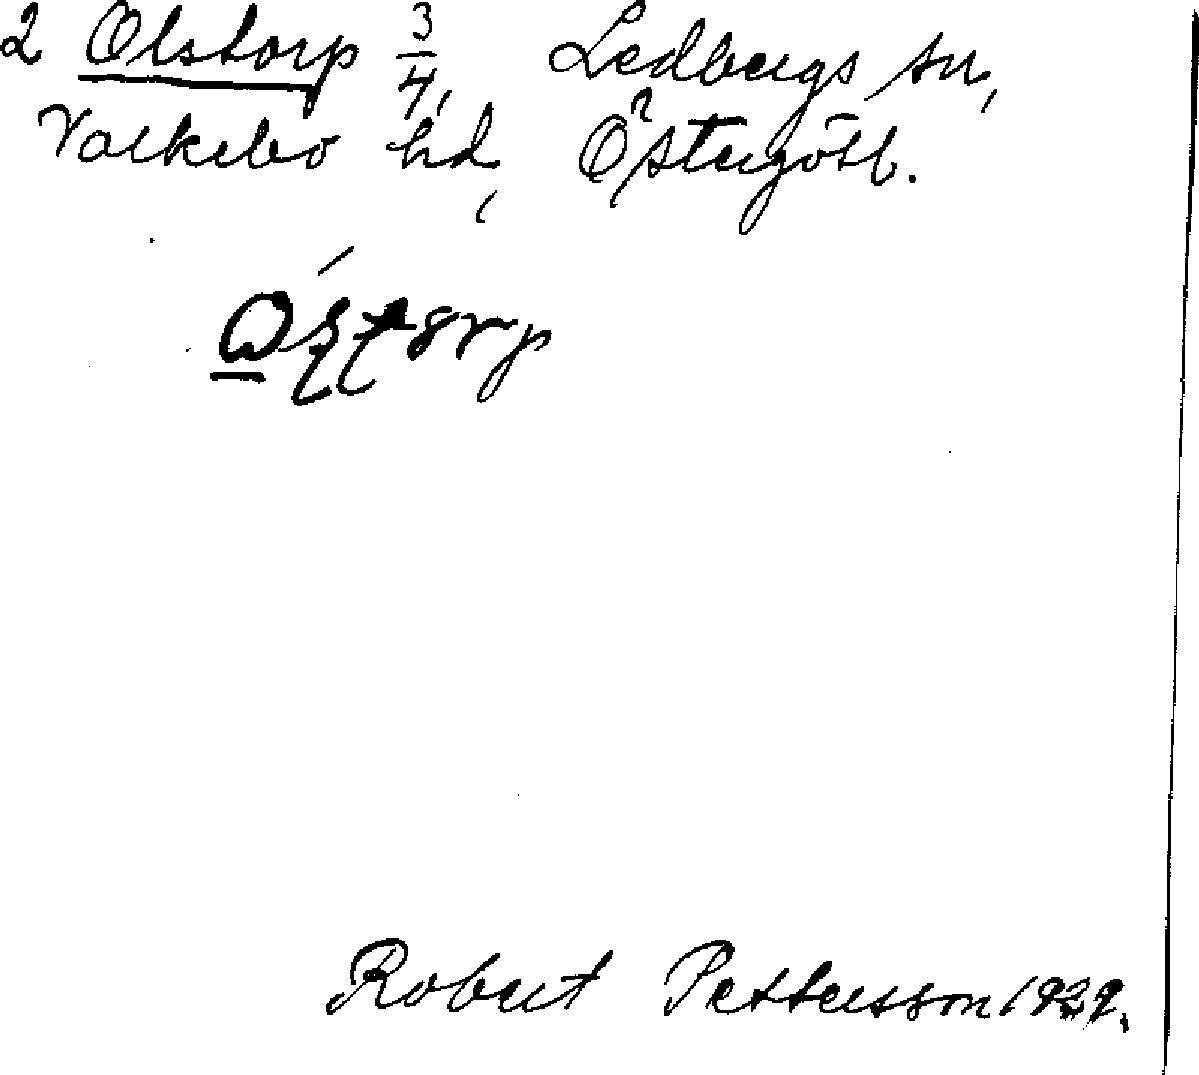 2 Olstorp 3/4, Ledbergs sn,
Valkebo hd, Östergötl.
Robert Pettersson 1929.